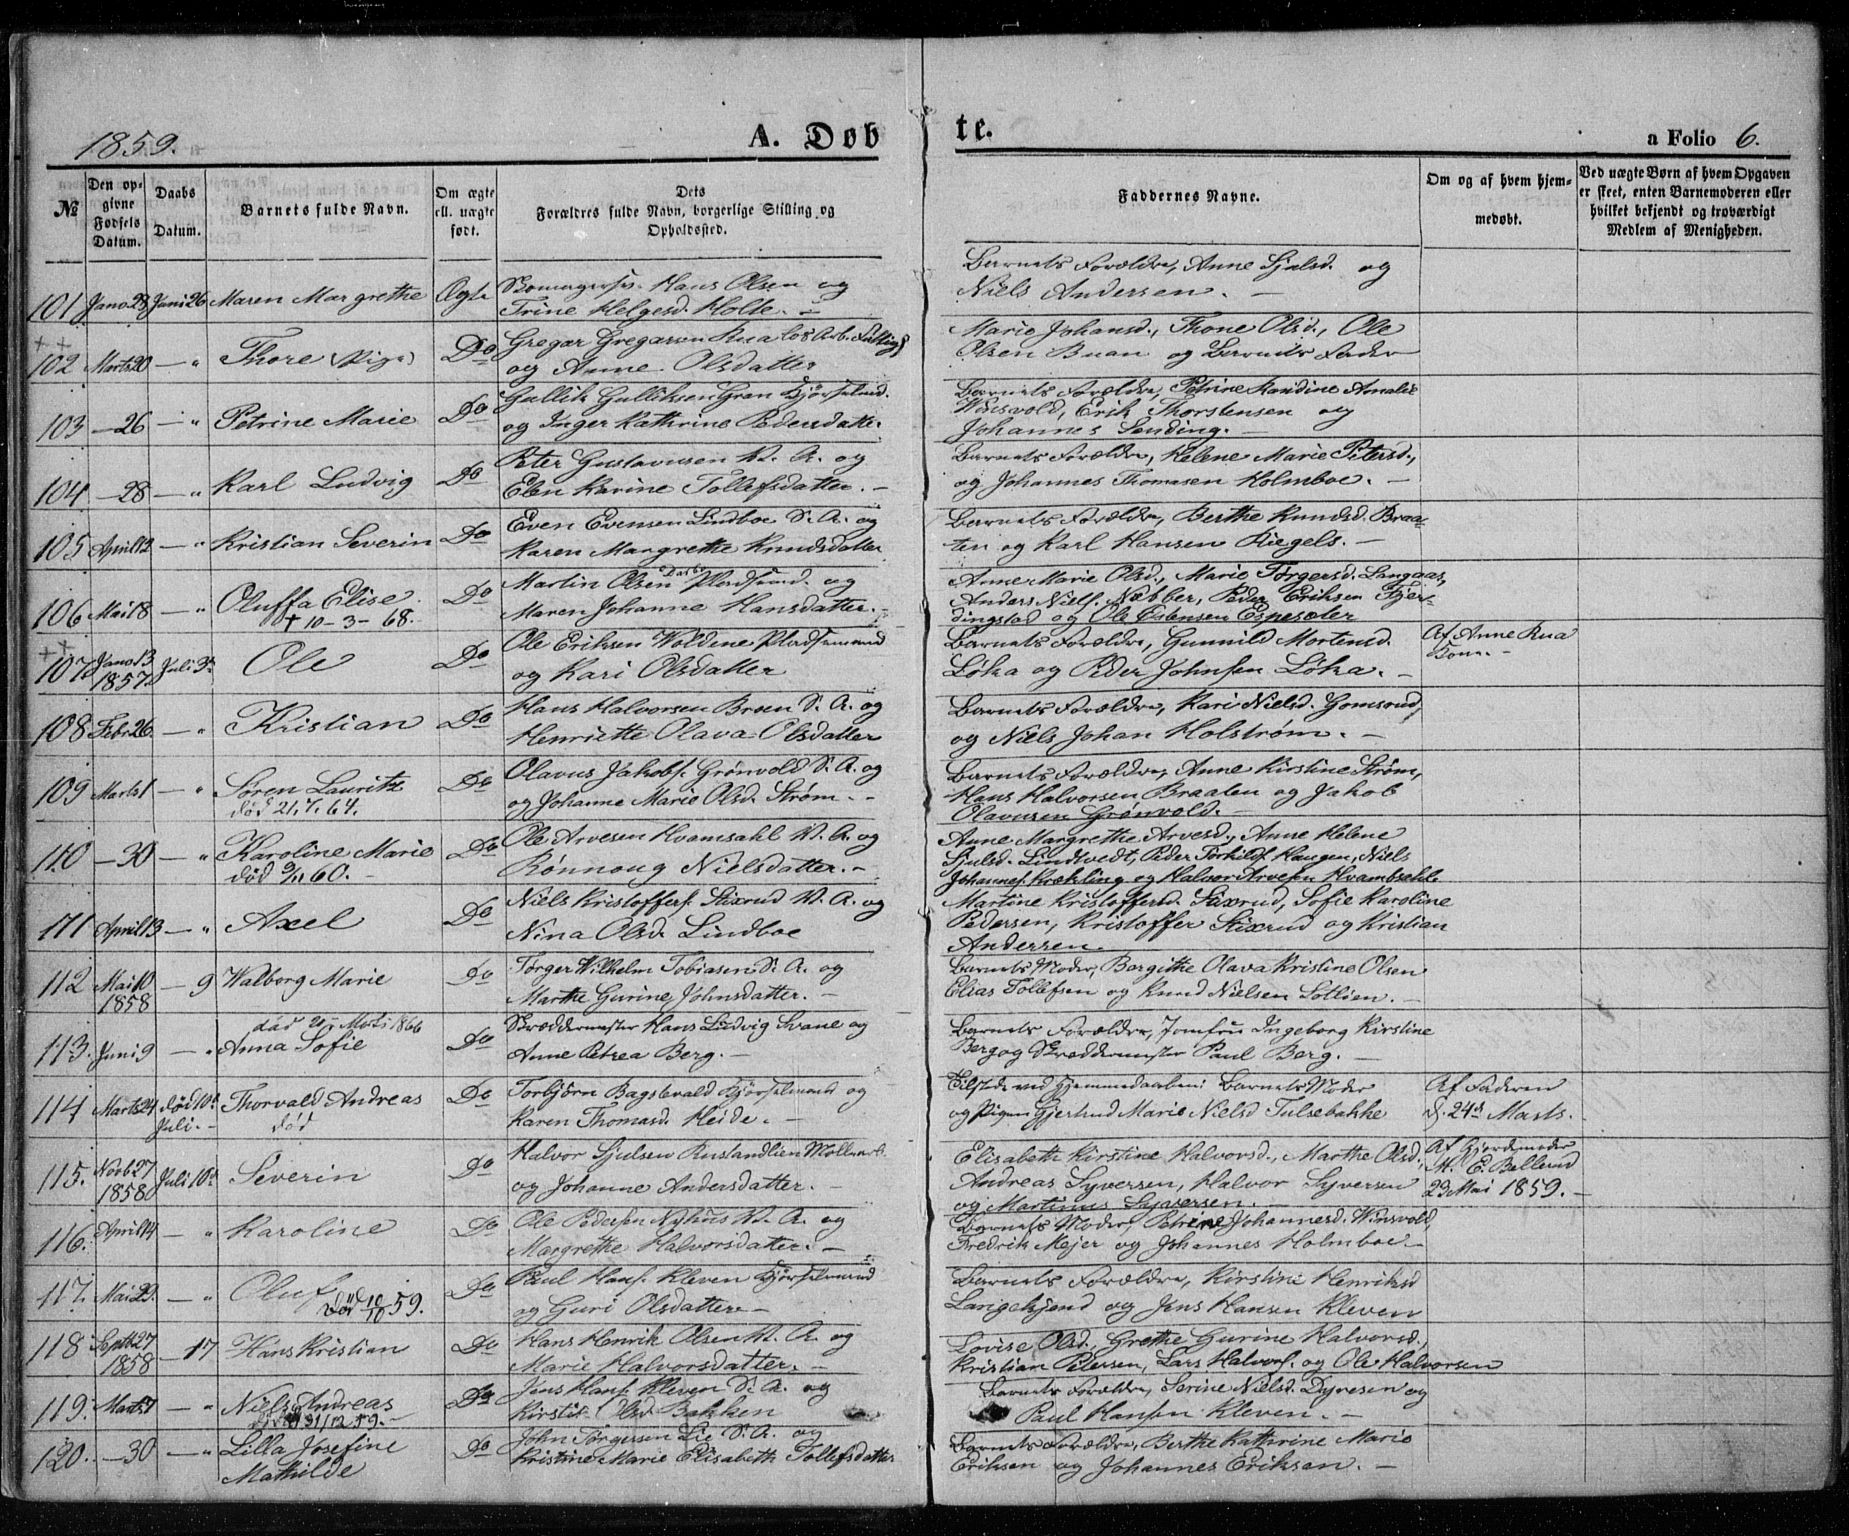 1859.
A. Døb
te.
a Folio 6.
№
Den op-
givne
Fødsels
Datum.
Daabs
Datum.
Barnets fulde Navn.
Om ægte
ell. uægte
født.
Dets
Forældres fulde Navn, borgerlige Stilling og
Opholdssted.
Faddernes Navne.
Om og af hvem hjem-
medøbt.
Ved uægte Børn af hvem Opgaven
er skeet, enten Barnemoderen eller
hvilket bekjendt og troværdigt
Medlem af Menigheden.
101 Janr. 28 Juni 26 Maren Margrethe Ægte
Hans Olsen og
Trine Helgesd. Holte. –
Barnets Forældre, Anne Sjulsd. og
Niels Andersen. –
++
102 Marts 20 — " Thore (Pige) Do
Gregar Gregarsen Rua
og Anne Olsdatter
Marie Johansd., Thone Olsd., Ole
Olsen Buan og Barnets Fader
103 — 26 — " Petrine Marie Do
Gullik Gulliksen Gran Kjørselmd.
og Inger Kathrine Pedersdatter.
Barnets Forældre, Petrine Randine Amalie
Winsvold, Erik Thorstensen og
Johannes Sending. –
104 — 28 — " Karl Ludvig Do
Peter Gustavusen V. A. og
Elen Karine Tollefsdatter. –
Barnets Forældre, Helene Marie Petersd.,
og Johannes Thomasen Holmboe. –
105 April 12 — " Kristian Severin Do
Even Evensen Lindboe S. A. og
Karen Margrethe Knudsdatter
Barnets Forældre, Berthe Knudsd. Braa-
ten og Karl Hansen Kiegels. –
106 Mai 18 — " Oluffa Elise Do
+ 10 – 3 – 68. –
Martin Olsen Pladsmd. og
Maren Johanne Hansdatter. –
Anne Marie Olsd., Marie Tørgersd. Langaas,
Anders Niels. Nebber, Peder Eriksen Fjer-
dingstad og Ole Estensen Espesæter
++
107 Janr. 13
1857 Juli 3d Ole Do
Ole Eriksen Woldene Pladsemand
og Kari Olsdatter
Barnets Forældre, Gunnild Mortensd.
Løka og Peder Johnsen Løka. –
Af Anne Rua
Kone. –
108 Febr. 26 — " Kristian Do
Hans Halvorsen Broen S. A. og
Henriette Olava Olsdatter
Barnets Forældre, Kari Nielsd. Gomsrud,
og Niels Johan Holstrøm. –
109 Marts 1 — " Søren Lauritz Do
død 21. 7. 64.
Olavus Jakobs. Grønvold S. A. og
og Johanne Marie Olsd. Strøm. –
Barnets Forældre, Anne Kirstine Strøm,
Hans Halvorsen Braaten og Jakob
Olavusen Grønvold. –
110 — 30 — " Karoline Marie Do
død 9/11 60. –
Ole Arvesen Hvamsahl V. A. og
Rønnoug Nielsdatter. –
Anne Margrethe Arvesd., Anne Helene
Sjulsd. Lindtvedt, Peder Torkilds. Haugen, Niels
Johannes. Krekling og Halvor Arvesen Hvambsahl.
111 April 13 — " Axel Do
Niels Kristoffers. Stixrud V. A. og
Nina Olsd. Lindboe
Martine Kristoffersd. Stixrud, Sofie Karoline
Pedersen, Kristoffer Stixrud og Kristian
Andersen. –
112 Mai 10
1858 — 9 Walborg Marie Do
Tørger Wilhelm Tobiasen S. A. og
Marthe Gurine Johnsdatter. –
Barnets Moder, Borgithe Olava Kristine Olsen
Elias Tollefsen og Knud Nielsen Sotlien. –
død 20 – Marts 1866
113. Juni 9 — " Anna Sofie Do
Skræddermester Hans Ludvig Svane og
Anne Petrea Berg. –
Barnets Forældre, Jomfru Ingeborg Kirstine
Berg og Skræddermester Paul Berg. –
114 Marts 24 død 10d
Juli. – Thorvald Andreas Do
død
Torbjørn Bagstevald Kjørselmand og
Karen Thomasd. Heide. –
Tilstede ved Hjemmedaaben: Barnets Moder
og Pigen Gjertrud Marie Nielsd Tulsebakke
Af Faderen
d. 24d Marts.
115. Novb 27
1858 Juli 10d Severin Do
Halvor Sjulsen Rustandlien Møllearb.
og Johanne Andersdatter. –
Elisabeth Kirstine Halvorsd., Marthe Olsd.,
Andreas Syversen, Halvor Syversen
og Martinus Syversen. –
Af Gjordemoder
M. E. Bellerud
23 Mai 1859. –
116. April 14 — " Karoline Do
Ole Pedersen Nyhus V. A. og
Margrethe Halvorsdatter. –
Barnets Moder, Petrine Johannesd. Winsvold,
Fredrik Mejer og Johannes Holmboe. –
117. Mai 29. — " Oluf Do
Død 10/10 59.
Paul Hans. Kleven Kjørselmand
og Guri Olsdatter –
Barnets Forældre, Kirstine Henriksd
Langekjend og Jens Hansen Kleven
118 Septb 27
1858 — 17 Hans Kristian Do
Hans Henrik Olsen V. A. og
Marie Halvorsdatter. –
Lovise Olsd., Grethe Gurine Halvorsd.,
Kristian Petersen, Lars Halvors. og Ole Halvorsen
119. Marts 7 — " Niels Andreas Do
død 31/12 59. –
Jens Hans. Kleven S. A. og
Kirsti Olsd Bakken
Barnets Forældre, Serine Nielsd. Dyresen og
Paul Hansen Kleven. –
120. — 30 — " Lilla Josefine Do
Mathilde
John Tørgersen Lie S. A. og
Kristine Marie Elisabeth Tollefsdatter
Barnets Forældre, Berthe Kathrine Marie
Eriksen og Johannes Eriksen. –